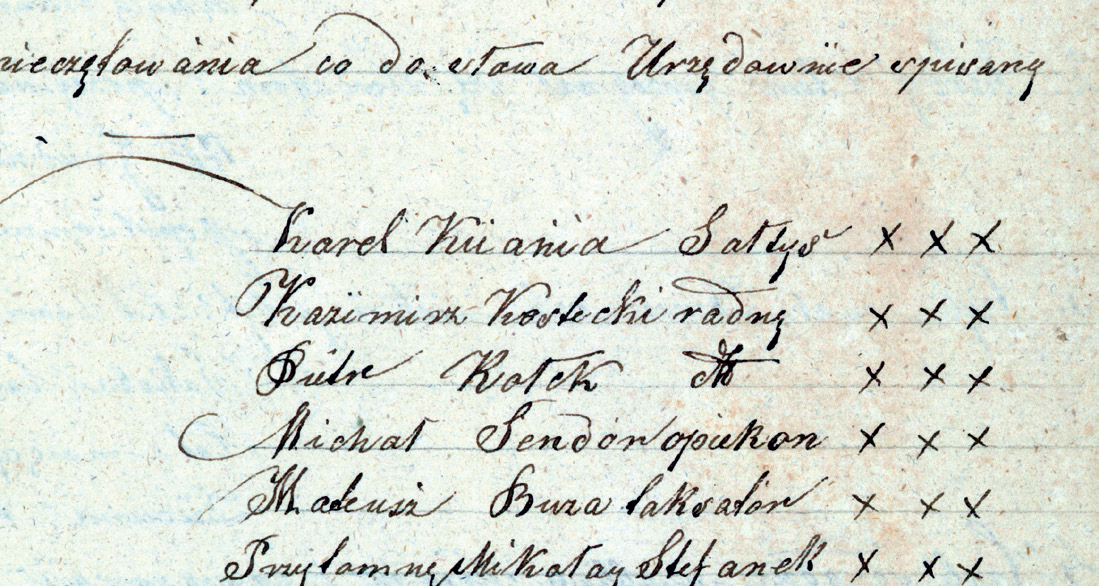 nieczętowánia co do słowa Urzędownie spisany
Karel Kúania Sałtys x x x
Kazimirz Kostecki radny x x x
Piůtr Kotek dto x x x
Michał Sendór opiekon x x x
Mateusz Buza taksatór x x x
Przytomny Mikołay Stefanek x x x